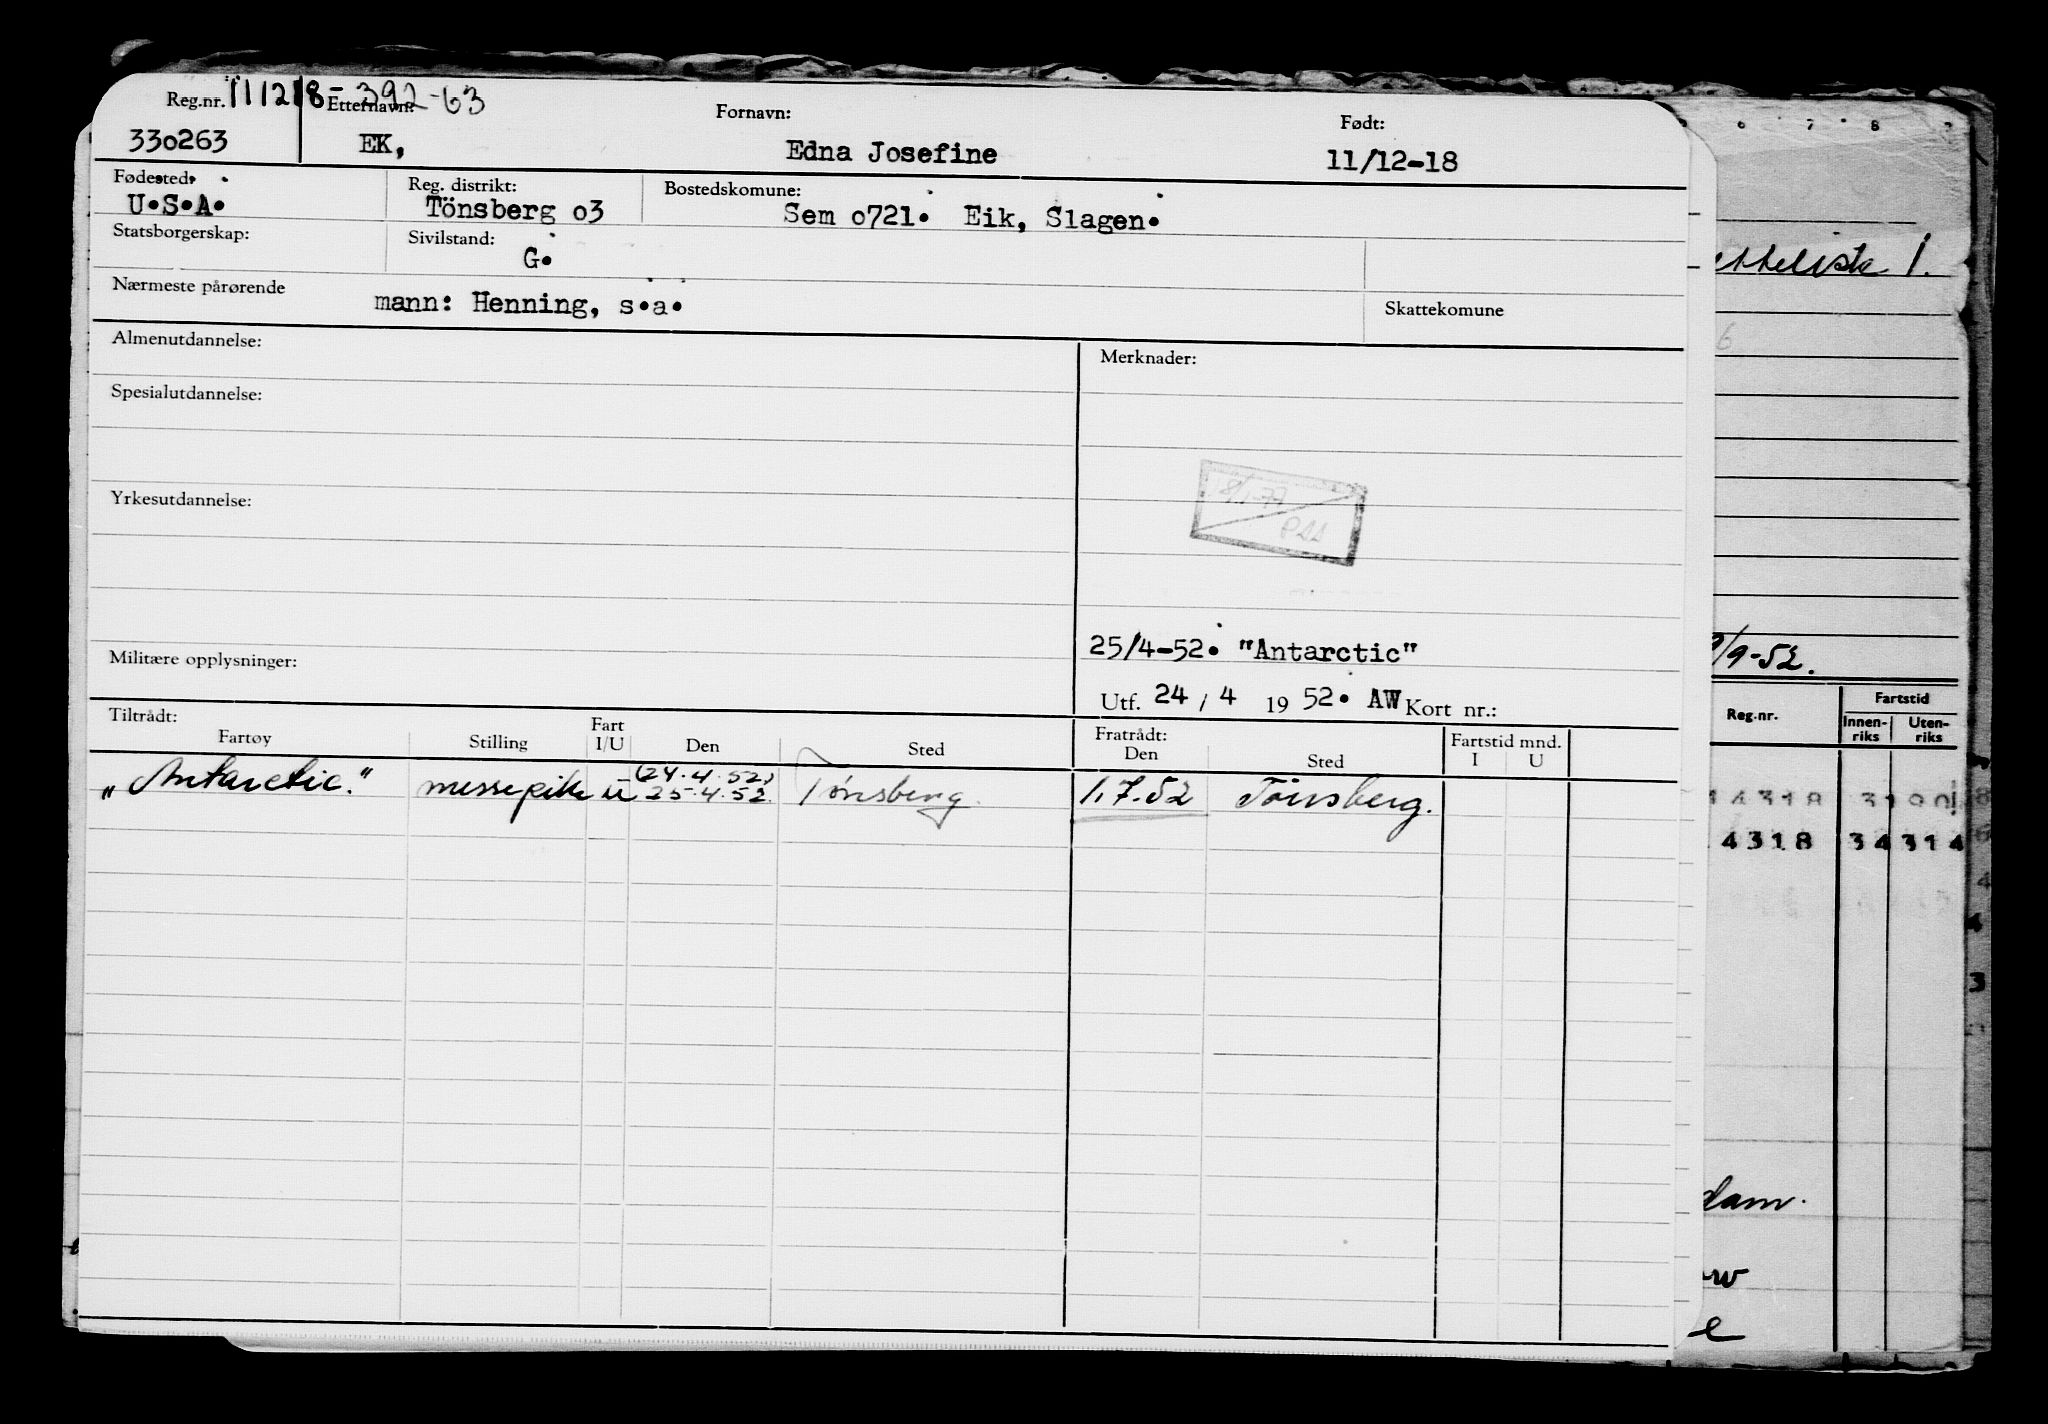 Reg.nr. 111218-392-63 Etternavn: Fornavn: Født:
330263 EK, Edna Josefine 11/12-18
Fødested: Reg. distrikt: Bostedskomune:
U.S.A. Tönsberg o3 Sem o721. Eik, Slagen.
Statsborgerskap: Sivilstand:
G.
Nærmeste pårørende mann: Henning, s.a. Skattekomune
Almenutdannelse: Merknader:
Spesialutdannelse:
Yrkesutdannelse:
18/1-77
Militære opplysninger: 25/4-52. "Antarctic"
Utf. 24 / 4 19 52. AW Kort nr.:
Tiltrådt: Fartøy Stilling Fart I/U Den Sted Fratrådt: Den Sted Fartstid mnd. I U
(24.4.52)
"Antarctic." messepike u 25.4.52. Tönsberg. 1.7.52 Tönsberg.
6 7 8
1.
6
/9-52.
Reg.nr. Fartstid
Innen-riks Uten-riks
14318 3190
4318 34 314
dam.